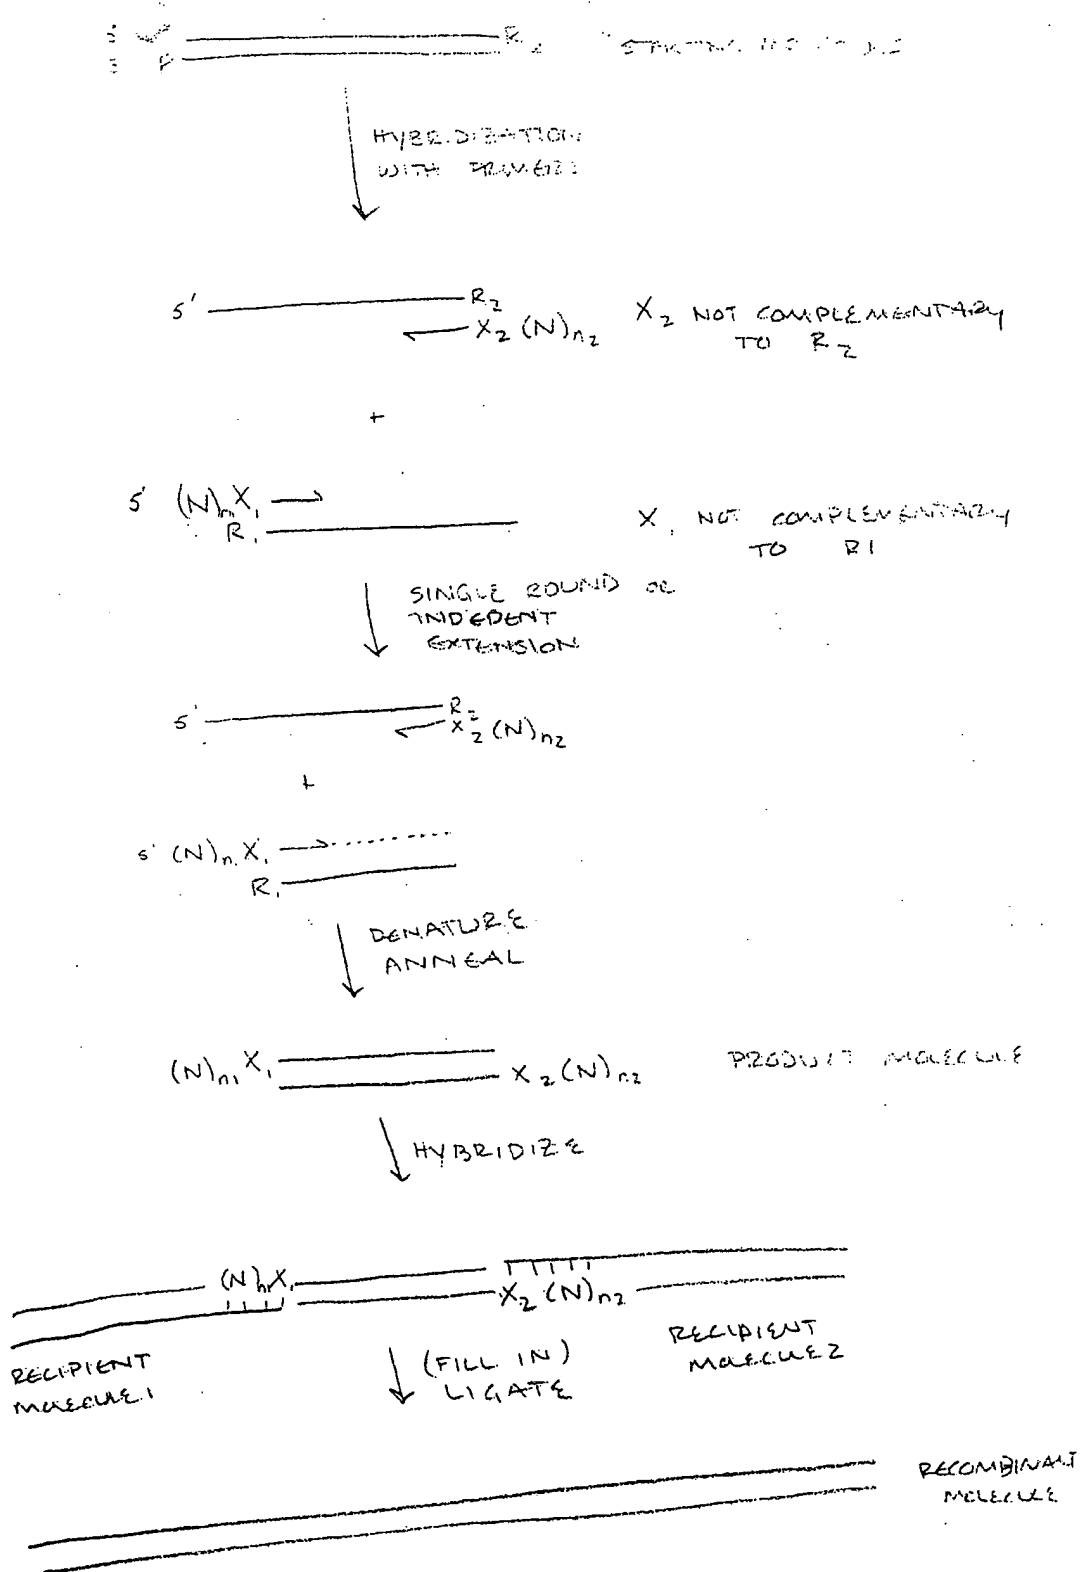 5'
R₂
3
HYBRIDIZATION
WITH PRIMERS
5' R₂
X₂ (N)n₂
X₂ NOT COMPLEMENTARY
TO R₂
+
5' (N)n X₁
R₁
X₁ NOT COMPLEMENTARY
TO R1
SINGLE ROUND OR
INDEDENT
EXTENSION
5' R₂
X₂ (N)n₂
+
5' (N)n₁ X₁
R₁
DENATURE
ANNEAL
(N)n₁ X₁
X₂ (N)n₂
PRODUCT MOLECULE
HYBRIDIZE
(N)n X₁
X₂ (N)n₂
RECIPIENT
MOLECULE 1
RECIPIENT
MOLECULE 2
(FILL IN)
LIGATE
RECOMBINANT
MOLECULE